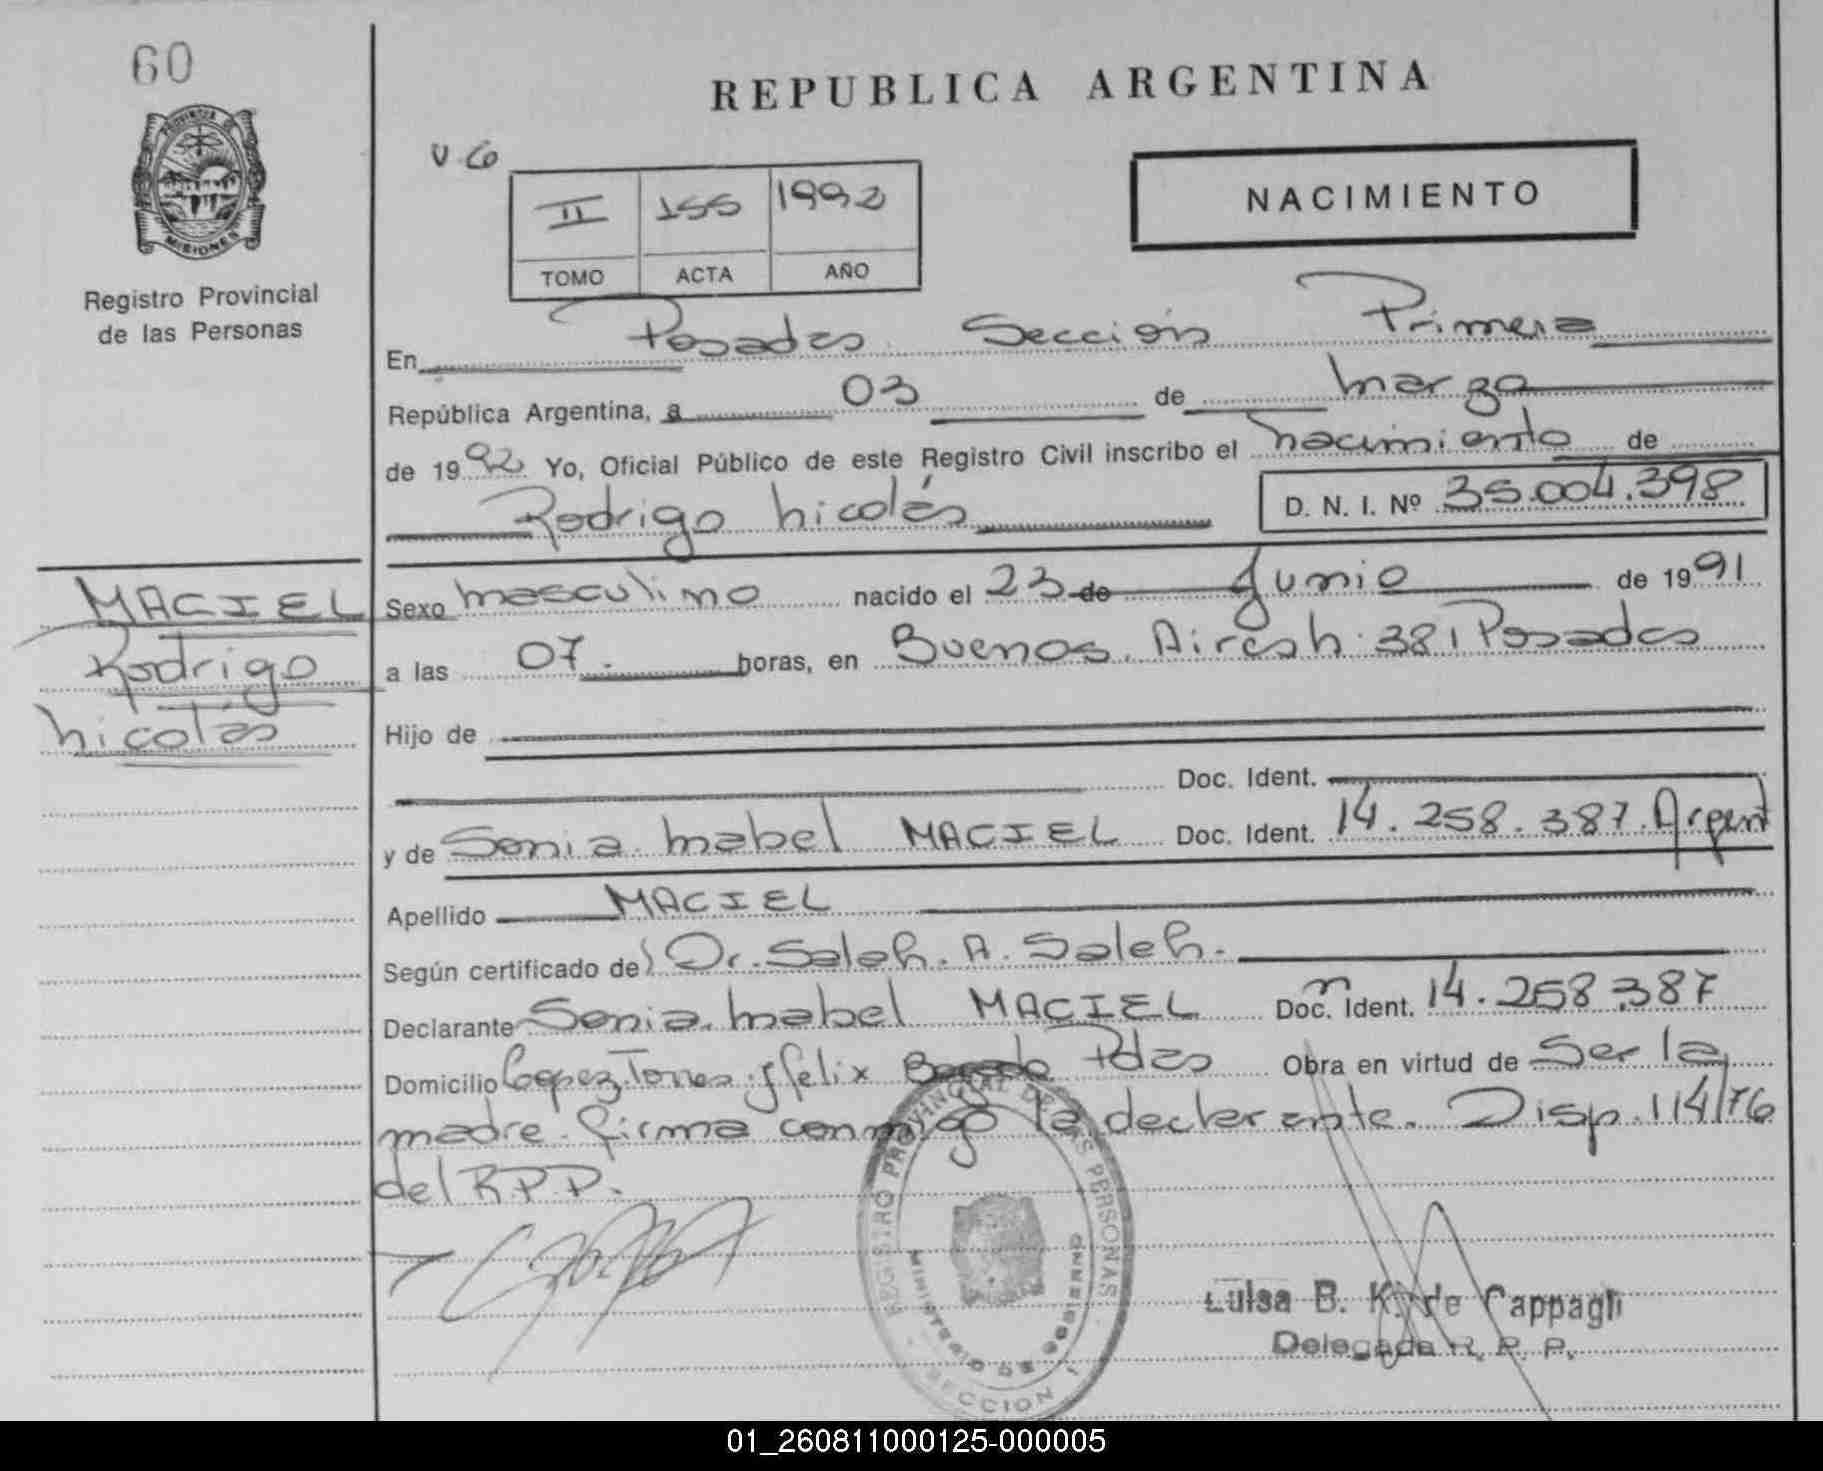 60
PROVINCIA DE
MISIONES
Registro Provincial
de las Personas
REPUBLICA ARGENTINA
II 155 1992
TOMO ACTA AÑO
NACIMIENTO
En Posadas Sección Primera
República Argentina, a 03 de marzo
de 1992 Yo, Oficial Público de este Registro Civil inscribo el nacimiento de
Rodrigo Nicolás D. N. I. Nº 35.004.398
MACIEL
Rodrigo
Nicolás
Sexo masculino nacido el 23 de Junio de 1991
a las 07. horas, en Buenos Aires h 381 Posadas
Hijo de
Doc. Ident.
y de Sonia Mabel MACIEL Doc. Ident. 14.258.387 Argent
Apellido MACIEL
Según certificado de Dr. Saleh. A. Saleh.
Declarante Sonia Mabel MACIEL Doc. Ident. 14.258.387
Domicilio Lopez Torres y felix Pdas Obra en virtud de Ser la
madre. firma conmigo la declarante. Disp. 114/76
del R.P.P.
REGISTRO PROVINCIAL DE LAS PERSONAS
MINISTERIO DE GOBIERNO
SECCION 1
Luisa B. K. de Cappagli
Delegada R. P. P.
01_260811000125-000005